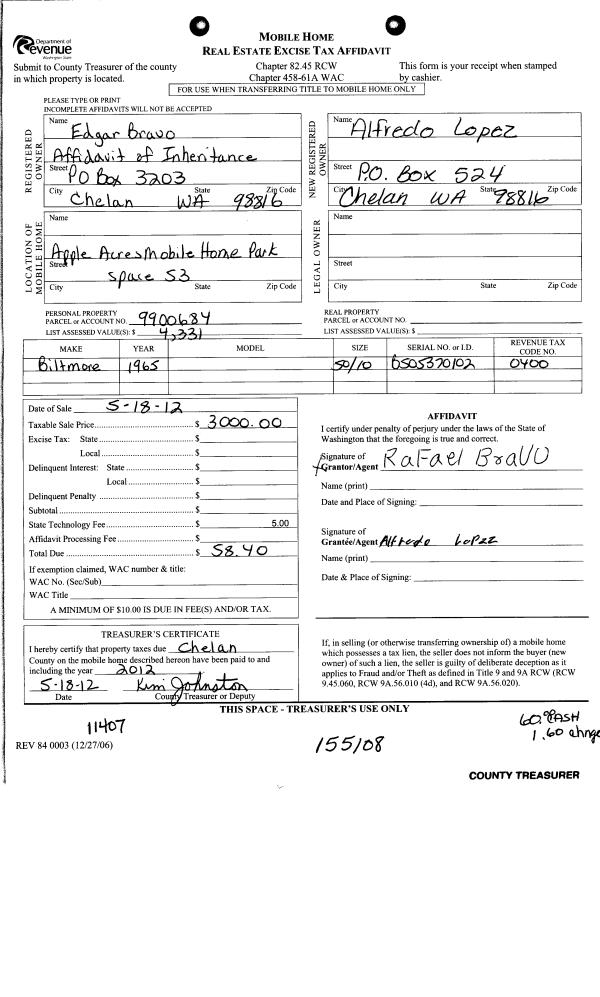 Department of
Revenue
Washington State
MOBILE HOME
REAL ESTATE EXCISE TAX AFFIDAVIT
Submit to County Treasurer of the county
in which property is located.
Chapter 82.45 RCW
Chapter 458-61A WAC
This form is your receipt when stamped
by cashier.
FOR USE WHEN TRANSFERRING TITLE TO MOBILE HOME ONLY
PLEASE TYPE OR PRINT
INCOMPLETE AFFIDAVITS WILL NOT BE ACCEPTED
REGISTERED OWNER
Name Edgar Bravo
Affidavit of Inheritance
Street PO Box 3203
City State Zip Code
Chelan WA 98816
NEW REGISTERED OWNER
Name Alfredo Lopez
Street P.O. Box 524
City State Zip Code
Chelan WA 98816
LOCATION OF MOBILE HOME
Name
Apple Acres Mobile Home Park
Street
Space 53
City State Zip Code
LEGAL OWNER
Name
Street
City State Zip Code
PERSONAL PROPERTY
PARCEL or ACCOUNT NO. 9900684
LIST ASSESSED VALUE(S): $ 4,331
REAL PROPERTY
PARCEL or ACCOUNT NO.
LIST ASSESSED VALUE(S): $
MAKE YEAR MODEL SIZE SERIAL NO. or I.D. REVENUE TAX CODE NO.
Biltmore 1965 50/10 BS05370102 0400
Date of Sale 5-18-12
Taxable Sale Price $ 3000.00
Excise Tax: State $
Local $
Delinquent Interest: State $
Local $
Delinquent Penalty $
Subtotal $
State Technology Fee $ 5.00
Affidavit Processing Fee $
Total Due $ 58.40
If exemption claimed, WAC number & title:
WAC No. (Sec/Sub)
WAC Title
A MINIMUM OF $10.00 IS DUE IN FEE(S) AND/OR TAX.
AFFIDAVIT
I certify under penalty of perjury under the laws of the State of
Washington that the foregoing is true and correct.
Signature of
Grantor/Agent Rafael Bravo
Name (print)
Date and Place of Signing:
Signature of
Grantee/Agent Alfredo Lopez
Name (print)
Date & Place of Signing:
TREASURER'S CERTIFICATE
I hereby certify that property taxes due Chelan
County on the mobile home described hereon have been paid to and
including the year 2012
5-18-12 Kim Johnston
Date County Treasurer or Deputy
If, in selling (or otherwise transferring ownership of) a mobile home
which possesses a tax lien, the seller does not inform the buyer (new
owner) of such a lien, the seller is guilty of deliberate deception as it
applies to Fraud and/or Theft as defined in Title 9 and 9A RCW (RCW
9.45.060, RCW 9A.56.010 (4d), and RCW 9A.56.020).
THIS SPACE - TREASURER'S USE ONLY
11407
REV 84 0003 (12/27/06)
155108
60.00 CASH
1.60 change
COUNTY TREASURER